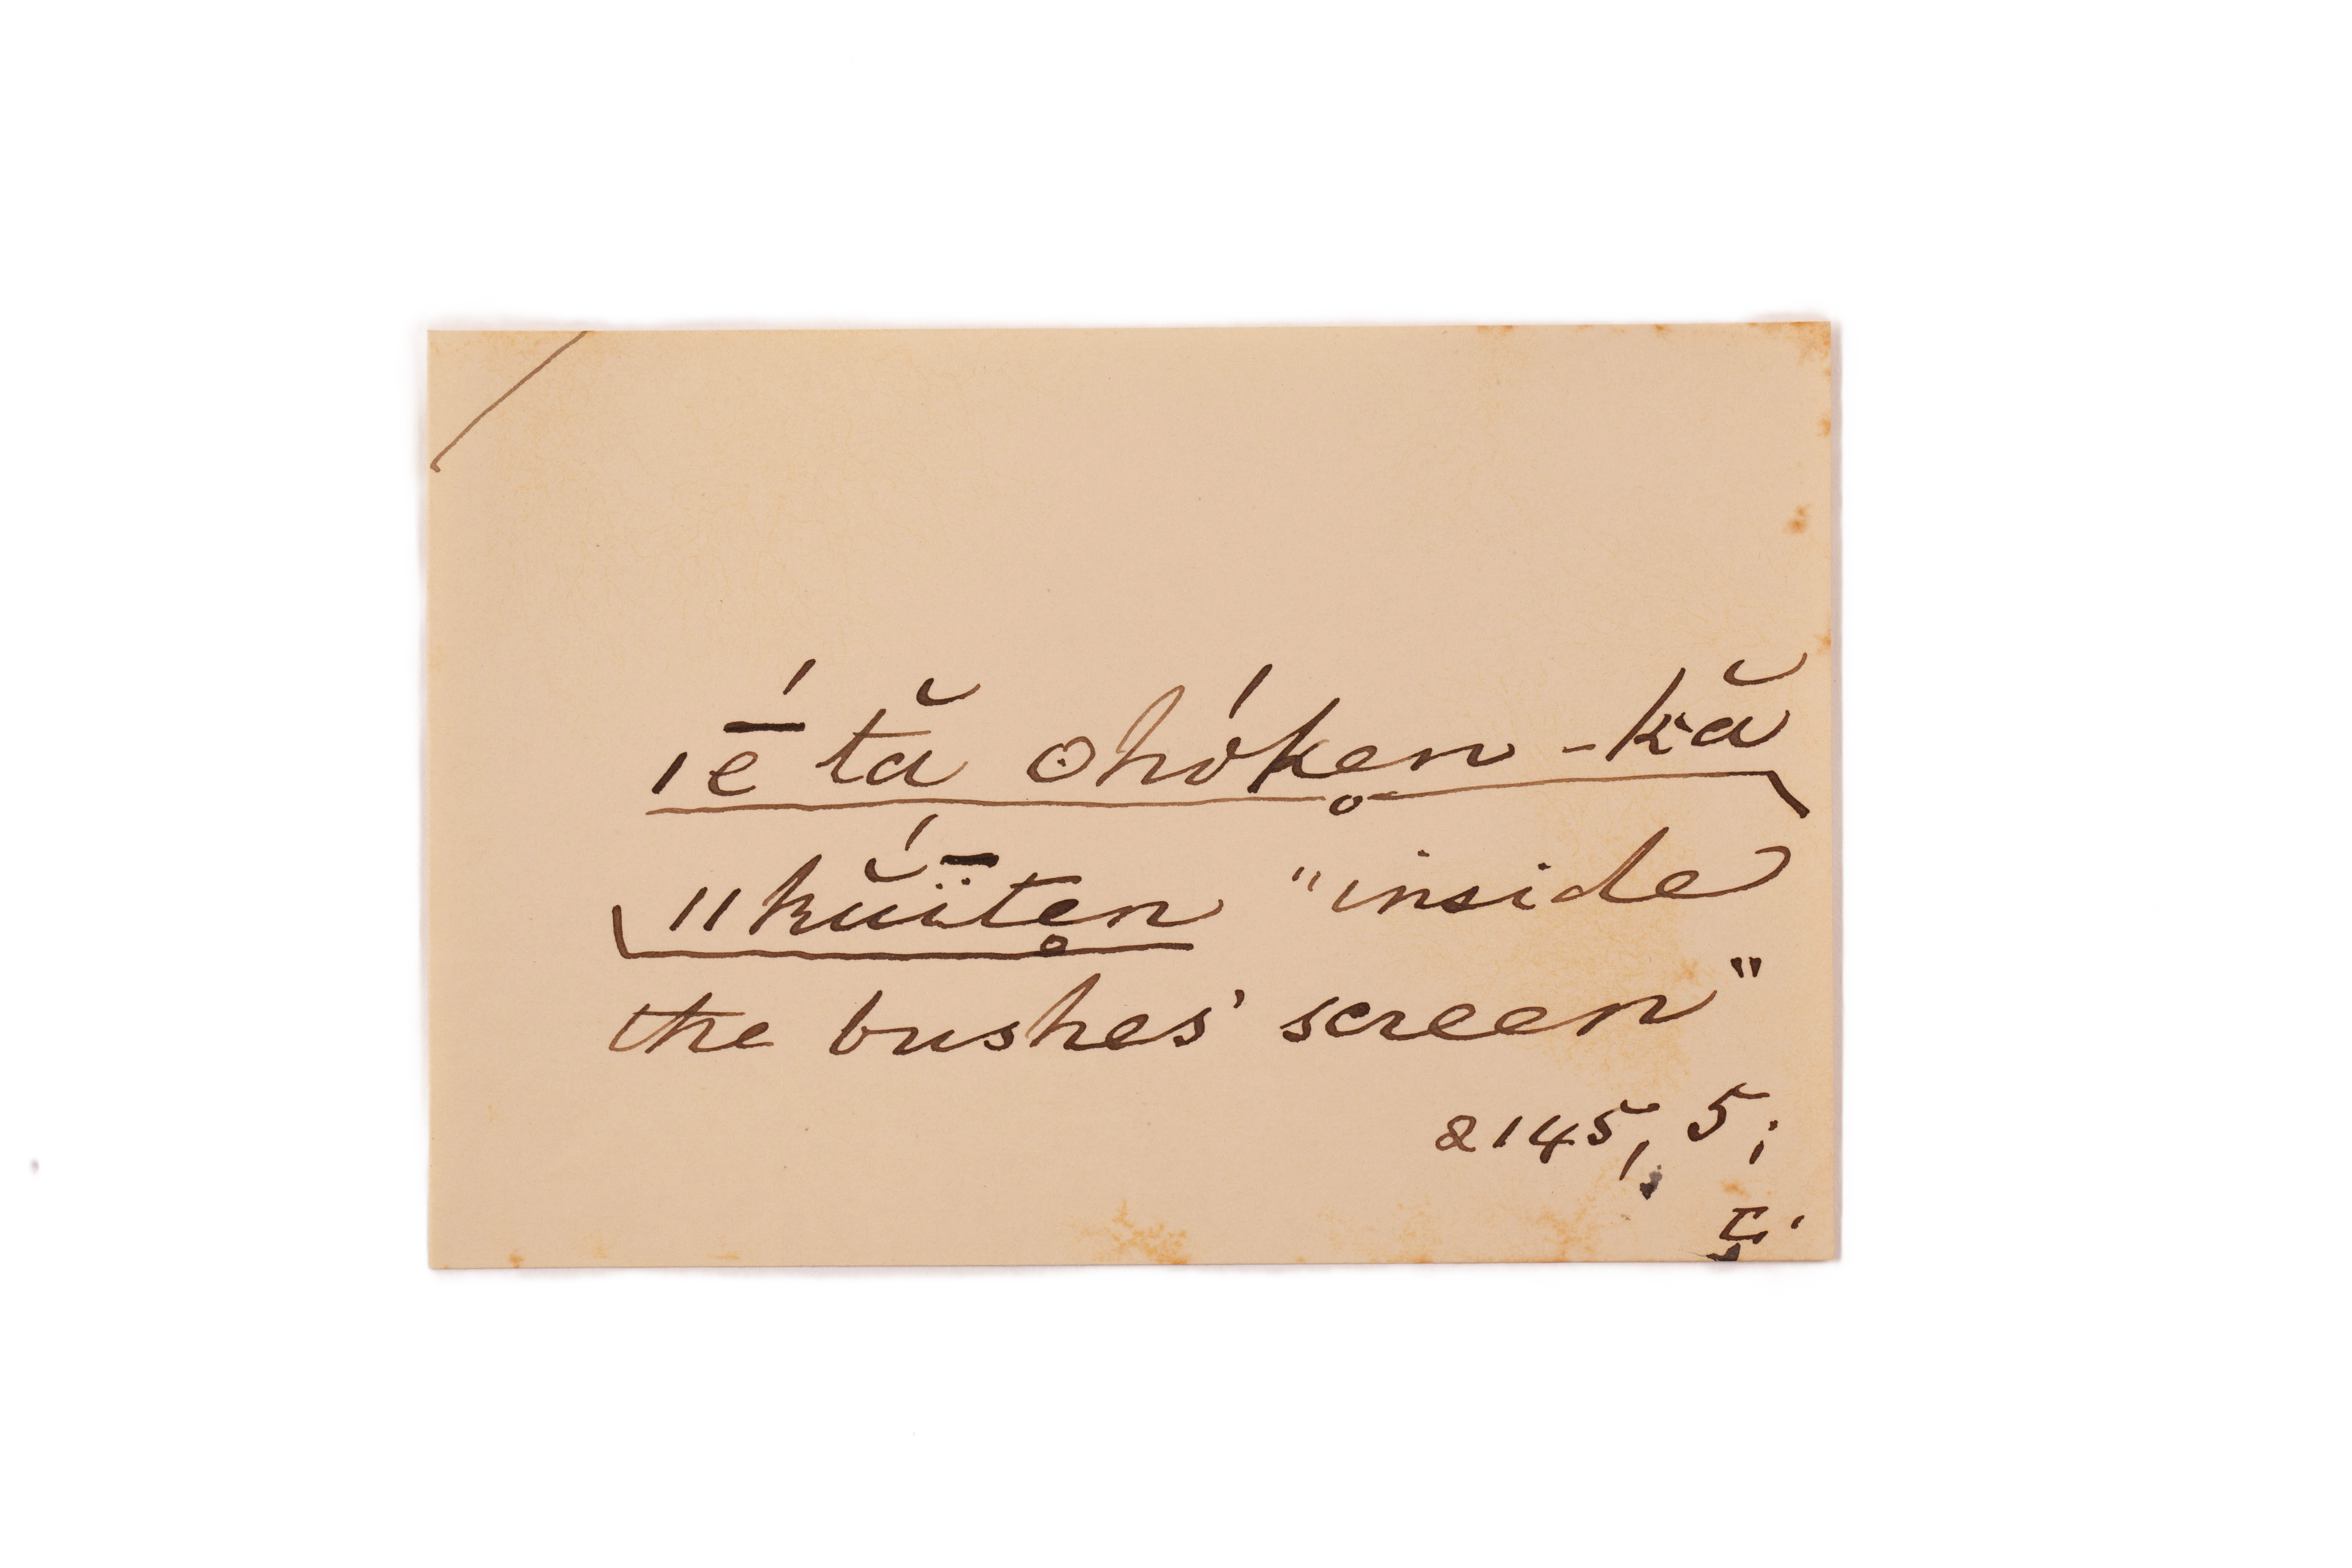 ıḗ tă ohóke̥n - kă
ıı kŭ́ïte̥n "inside
the bushes' screen"
2145, 5;
I.